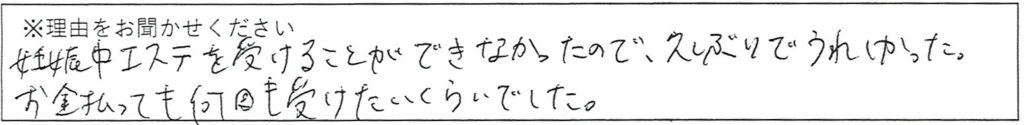 ※理由をお聞かせください
妊娠中エステを受けることができなかったので、久しぶりでうれしかった。
お金払っても何回も受けたいくらいでした。